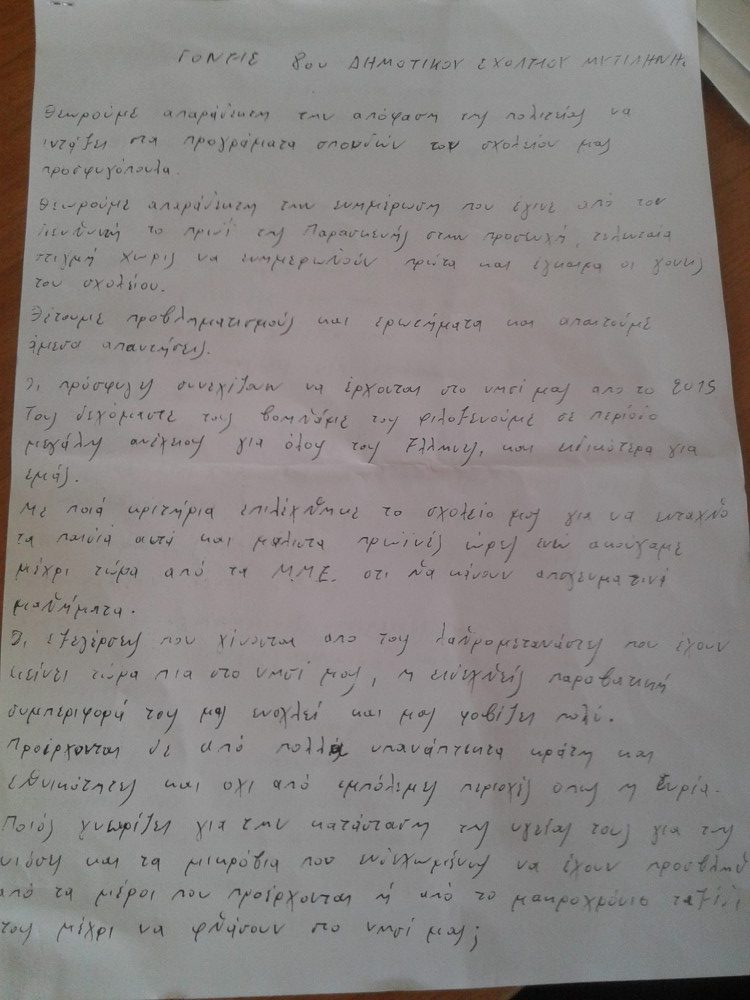 ΓΟΝΕΙΣ 8ου ΔΗΜΟΤΙΚΟΥ ΣΧΟΛΕΙΟΥ ΜΥΤΙΛΗΝΗΣ
Θεωρούμε απαράδεκτη την απόφαση της πολιτείας να
εντάξει στα προγράματα σπουδών του σχολείου μας
προσφυγόπουλα.
Θεωρούμε απαράδεκτη την ενημέρωση που έγινε από τον
διευθυντή το πρωί της Παρασκευής στην προσευχή, τελευταία
στιγμή χωρίς να ενημερωθούν πρώτα και έγκαιρα οι γονείς
του σχολείου.
Θέτουμε προβληματισμούς και ερωτήματα και απαιτούμε
άμεσα απαντήσεις.
Οι πρόσφυγες συνεχίζουν να έρχονται στο νησί μας απο το 2015
Τους δεχόμαστε τους βοηθάμε τους φιλοξενούμε σε περίοδο
μεγάλης ανέχειας για όλους τους Έλληνες, και ειδικότερα για
εμάς.
Με ποιά κριτήρια επιλέχθηκε το σχολείο μας για να ενταχθούν
τα παιδιά αυτά και μαλιστα πρωϊνές ώρες ενώ ακούγαμε
μέχρι τώρα από τα Μ.Μ.Ε. οτι θα κάνουν απογευματινά
μαθήματα.
Οι εξεγέρσεις που γίνονται απο τους λαθρομετανάστες που έχουν
μείνει τώρα πια στο νησί μας, η ειδεχθείς παραβατική
συμπεριφορά τους μας ενοχλεί και μας φοβίζει πολύ.
Προέρχονται δε από πολλά υπανάπτυκτα κράτη και
εθνικότητες και οχι από εμπόλεμες περιοχές οπως η Συρία.
Ποιός γνωρίζει για την κατάσταση της υγείας τους για τις
και τα μικρόβια που ενδεχωμένως να έχουν
από τα μέροι που προέρχονται ή από το μακροχρόνιο ταξίδι
τους μέχρι να φθάσουν στο νησί μας;